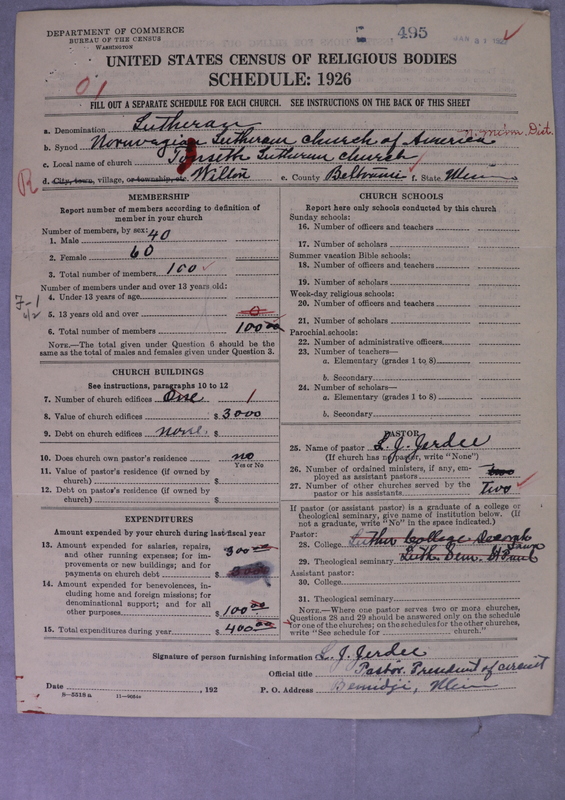 DEPARTMENT OF COMMERCE
BUREAU OF THE CENSUS
WASHINGTON
495
UNITED STATES CENSUS OF RELIGIOUS BODIES
SCHEDULE: 1926
FILL OUT A SEPARATE SCHEDULE FOR EACH CHURCH. SEE INSTRUCTIONS ON THE BACK OF THIS SHEET
a. Denomination Lutheran
b. Synod Norwegian Lutheran Church of America
c. Local name of church Lutheran church
d. City, town, village, or township, etc. Wilton e. County Beltrami f. State Minn
R
MEMBERSHIP
Report number of members according to definition of
member in your church
Number of members, by sex:
1. Male 40
2. Female 60
3. Total number of members 100
Number of members under and over 13 years old:
4. Under 13 years of age
5. 13 years old and over 0
6. Total number of members 100
NOTE.—The total given under Question 6 should be the
same as the total of males and females given under Question 3.
CHURCH BUILDINGS
See instructions, paragraphs 10 to 12
7. Number of church edifices One 1
8. Value of church edifices $ 3000
9. Debt on church edifices none $
10. Does church own pastor's residence no
Yes or No
11. Value of pastor's residence (if owned by
church) $
12. Debt on pastor's residence (if owned by
church) $
EXPENDITURES
Amount expended by your church during last fiscal year
13. Amount expended for salaries, repairs,
and other running expenses; for im-
provements or new buildings; and for
payments on church debt $ 300 00
14. Amount expended for benevolences, in-
cluding home and foreign missions; for
denominational support; and for all
other purposes $ 100 00
15. Total expenditures during year $ 400 00
CHURCH SCHOOLS
Report here only schools conducted by this church
Sunday schools:
16. Number of officers and teachers
17. Number of scholars
Summer vacation Bible schools:
18. Number of officers and teachers
19. Number of scholars
Week-day religious schools:
20. Number of officers and teachers
21. Number of scholars
Parochial schools:
22. Number of administrative officers
23. Number of teachers—
a. Elementary (grades 1 to 8)
b. Secondary
24. Number of scholars—
a. Elementary (grades 1 to 8)
b. Secondary
PASTOR
25. Name of pastor L. J. Jerdee
(If church has no pastor, write "None")
26. Number of ordained ministers, if any, em-
ployed as assistant pastors
27. Number of other churches served by the
pastor or his assistants two
If pastor (or assistant pastor) is a graduate of a college or
theological seminary, give name of institution below. (If
not a graduate, write "No" in the space indicated.)
Pastor:
28. College Luther College Decorah Iowa
29. Theological seminary Luth. Sem. St Paul
Assistant pastor:
30. College
31. Theological seminary
NOTE.—Where one pastor serves two or more churches,
Questions 28 and 29 should be answered only on the schedule
for one of the churches; on the schedules for the other churches,
write "See schedule for church."
Signature of person furnishing information L. J. Jerdee
Official title Pastor. President of circuit
Date , 192 P. O. Address Bemidji, Minn
8—5518 a 11—9064